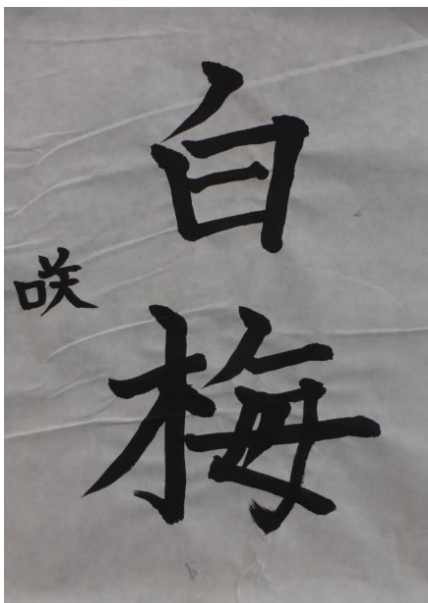 白梅
咲